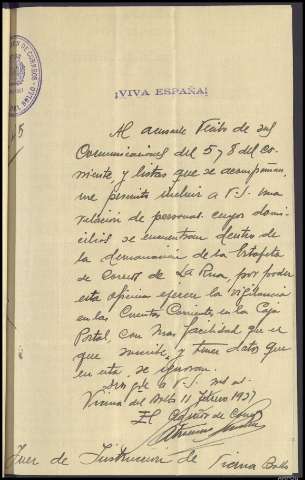 ¡VIVA ESPAÑA!
Al acusarle recibo de sus
Comunicaciones del 5 y 8 del co-
rriente, y listas que se acompañan,
me permito incluir a V.S. una
relación de personas cuyos domi-
cilios se encuentran dentro de
la demarcación de la Estafeta
de Correos de La Rua, por poder
esta oficina ejercer la vigilancia
en las Cuentas Corrientes en la Caja
Postal, con mas facilidad que el
que suscribe y tener datos que
en esta se ignoran.
Dios g. de a V.S. m.s a.s
Viana del Bollo 11 Febrero 1937
El Admor de Correos
Juez de Instruccion de Viana Bollo